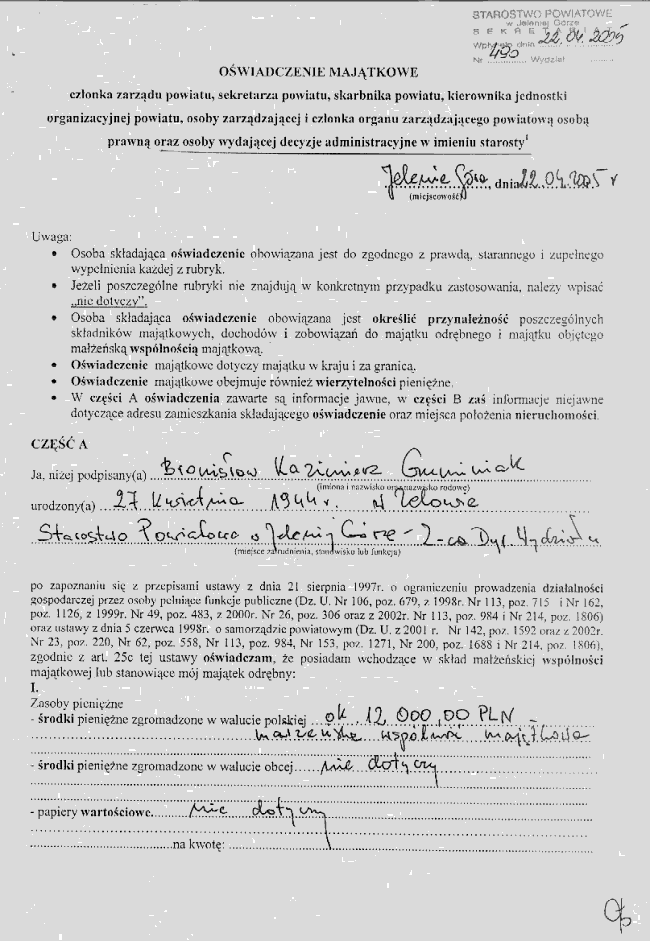 STAROSTWO POWIATOWE
w Jeleniej Górze
SEKRETARIAT
Wpłynęło dnia 22.04.2005
Nr 490 Wydział
OŚWIADCZENIE MAJĄTKOWE
członka zarządu powiatu, sekretarza powiatu, skarbnika powiatu, kierownika jednostki
organizacyjnej powiatu, osoby zarządzającej i członka organu zarządzającego powiatową osobą
prawną oraz osoby wydającej decyzje administracyjne w imieniu starosty¹
Jelenia Góra, dnia 22.04.2005 r
(miejscowość)
Uwaga:
• Osoba składająca oświadczenie obowiązana jest do zgodnego z prawdą, starannego i zupełnego
wypełnienia każdej z rubryk.
• Jeżeli poszczególne rubryki nie znajdują w konkretnym przypadku zastosowania, należy wpisać
„nie dotyczy”.
• Osoba składająca oświadczenie obowiązana jest określić przynależność poszczególnych
składników majątkowych, dochodów i zobowiązań do majątku odrębnego i majątku objętego
małżeńską wspólnością majątkową.
• Oświadczenie majątkowe dotyczy majątku w kraju i za granicą.
• Oświadczenie majątkowe obejmuje również wierzytelności pieniężne.
• W części A oświadczenia zawarte są informacje jawne, w części B zaś informacje niejawne
dotyczące adresu zamieszkania składającego oświadczenie oraz miejsca położenia nieruchomości.
CZĘŚĆ A
Ja, niżej podpisany(a) Bronisław Kazimierz Gruminiak
(imiona i nazwisko oraz nazwisko rodowe)
urodzony(a) 27 kwietnia 1944 r. w Zelowie
Starostwo Powiatowe w Jeleniej Górze - Z-ca Dyr. Wydziału
(miejsce zatrudnienia, stanowisko lub funkcja)
po zapoznaniu się z przepisami ustawy z dnia 21 sierpnia 1997r. o ograniczeniu prowadzenia działalności
gospodarczej przez osoby pełniące funkcje publiczne (Dz. U. Nr 106, poz. 679, z 1998r. Nr 113, poz. 715 i Nr 162,
poz. 1126, z 1999r. Nr 49, poz. 483, z 2000r. Nr 26, poz. 306 oraz z 2002r. Nr 113, poz. 984 i Nr 214, poz. 1806)
oraz ustawy z dnia 5 czerwca 1998r. o samorządzie powiatowym (Dz. U. z 2001 r. Nr 142, poz. 1592 oraz z 2002r.
Nr 23, poz. 220, Nr 62, poz. 558, Nr 113, poz. 984, Nr 153, poz. 1271, Nr 200, poz. 1688 i Nr 214, poz. 1806),
zgodnie z art. 25c tej ustawy oświadczam, że posiadam wchodzące w skład małżeńskiej wspólności
majątkowej lub stanowiące mój majątek odrębny:
I.
Zasoby pieniężne
- środki pieniężne zgromadzone w walucie polskiej ok. 12 000,00 PLN -
małżeńska wspólność majątkowa
- środki pieniężne zgromadzone w walucie obcej nie dotyczy
- papiery wartościowe nie dotyczy
na kwotę: